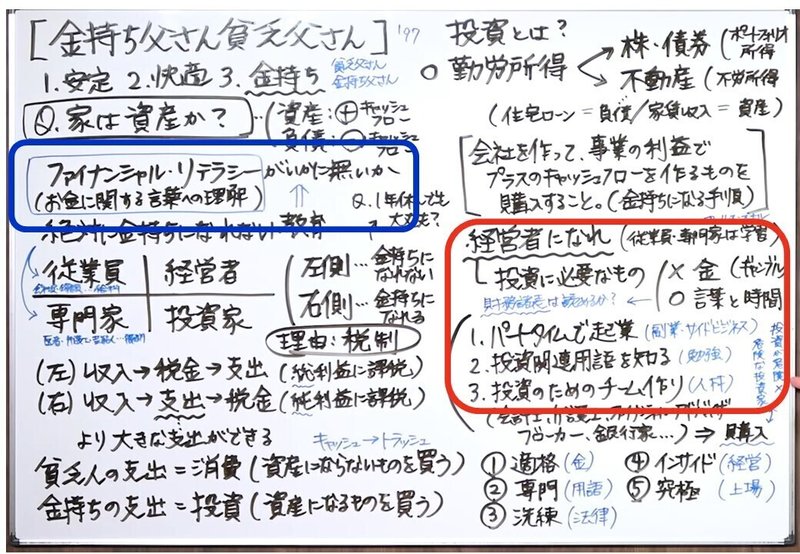 [金持ち父さん貧乏父さん] '97
1.安定 2.快適 3.金持ち 貧乏父さん
金持ち父さん
Q.家は資産か？
資産：⊕キャッシュフロー
負債：⊖キャッシュフロー
ファイナンシャル・リテラシーがいかに無いか
(お金に関する言葉への理解)
Q.1年休んでも大丈夫？
絶対に金持ちになれない 教育
従業員 経営者
専門家 投資家
左側…金持ちになれない
右側…金持ちになれる
理由：税制
(左)収入→税金→支出(総利益に課税)
(右)収入→支出→税金(純利益に課税)
より大きな支出ができる キャッシュ→トラッシュ
貧乏人の支出＝消費(資産にならないものを買う)
金持ちの支出＝投資(資産になるものを買う)
投資とは？
○勤労所得
株・債券(ポートフォリオ所得
不動産(不労所得
(住宅ローン＝負債/家賃収入＝資産)
会社を作って、事業の利益で
プラスのキャッシュフローを作るものを
購入すること。(金持ちになる手順)
経営者になれ(従業員・専門家は学習)
投資に必要なもの
×金(ギャンブル)
○言葉と時間
財務諸表は読めるか？←
1.パートタイムで起業(副業・サイドビジネス)
2.投資関連用語を知る(勉強)
3.投資のためのチーム作り(人材)
ブローカー、銀行家…)⇒購入
①適格(金)
②専門(用語)
③洗練(法律)
④インサイド(経営)
⑤究極(上場)